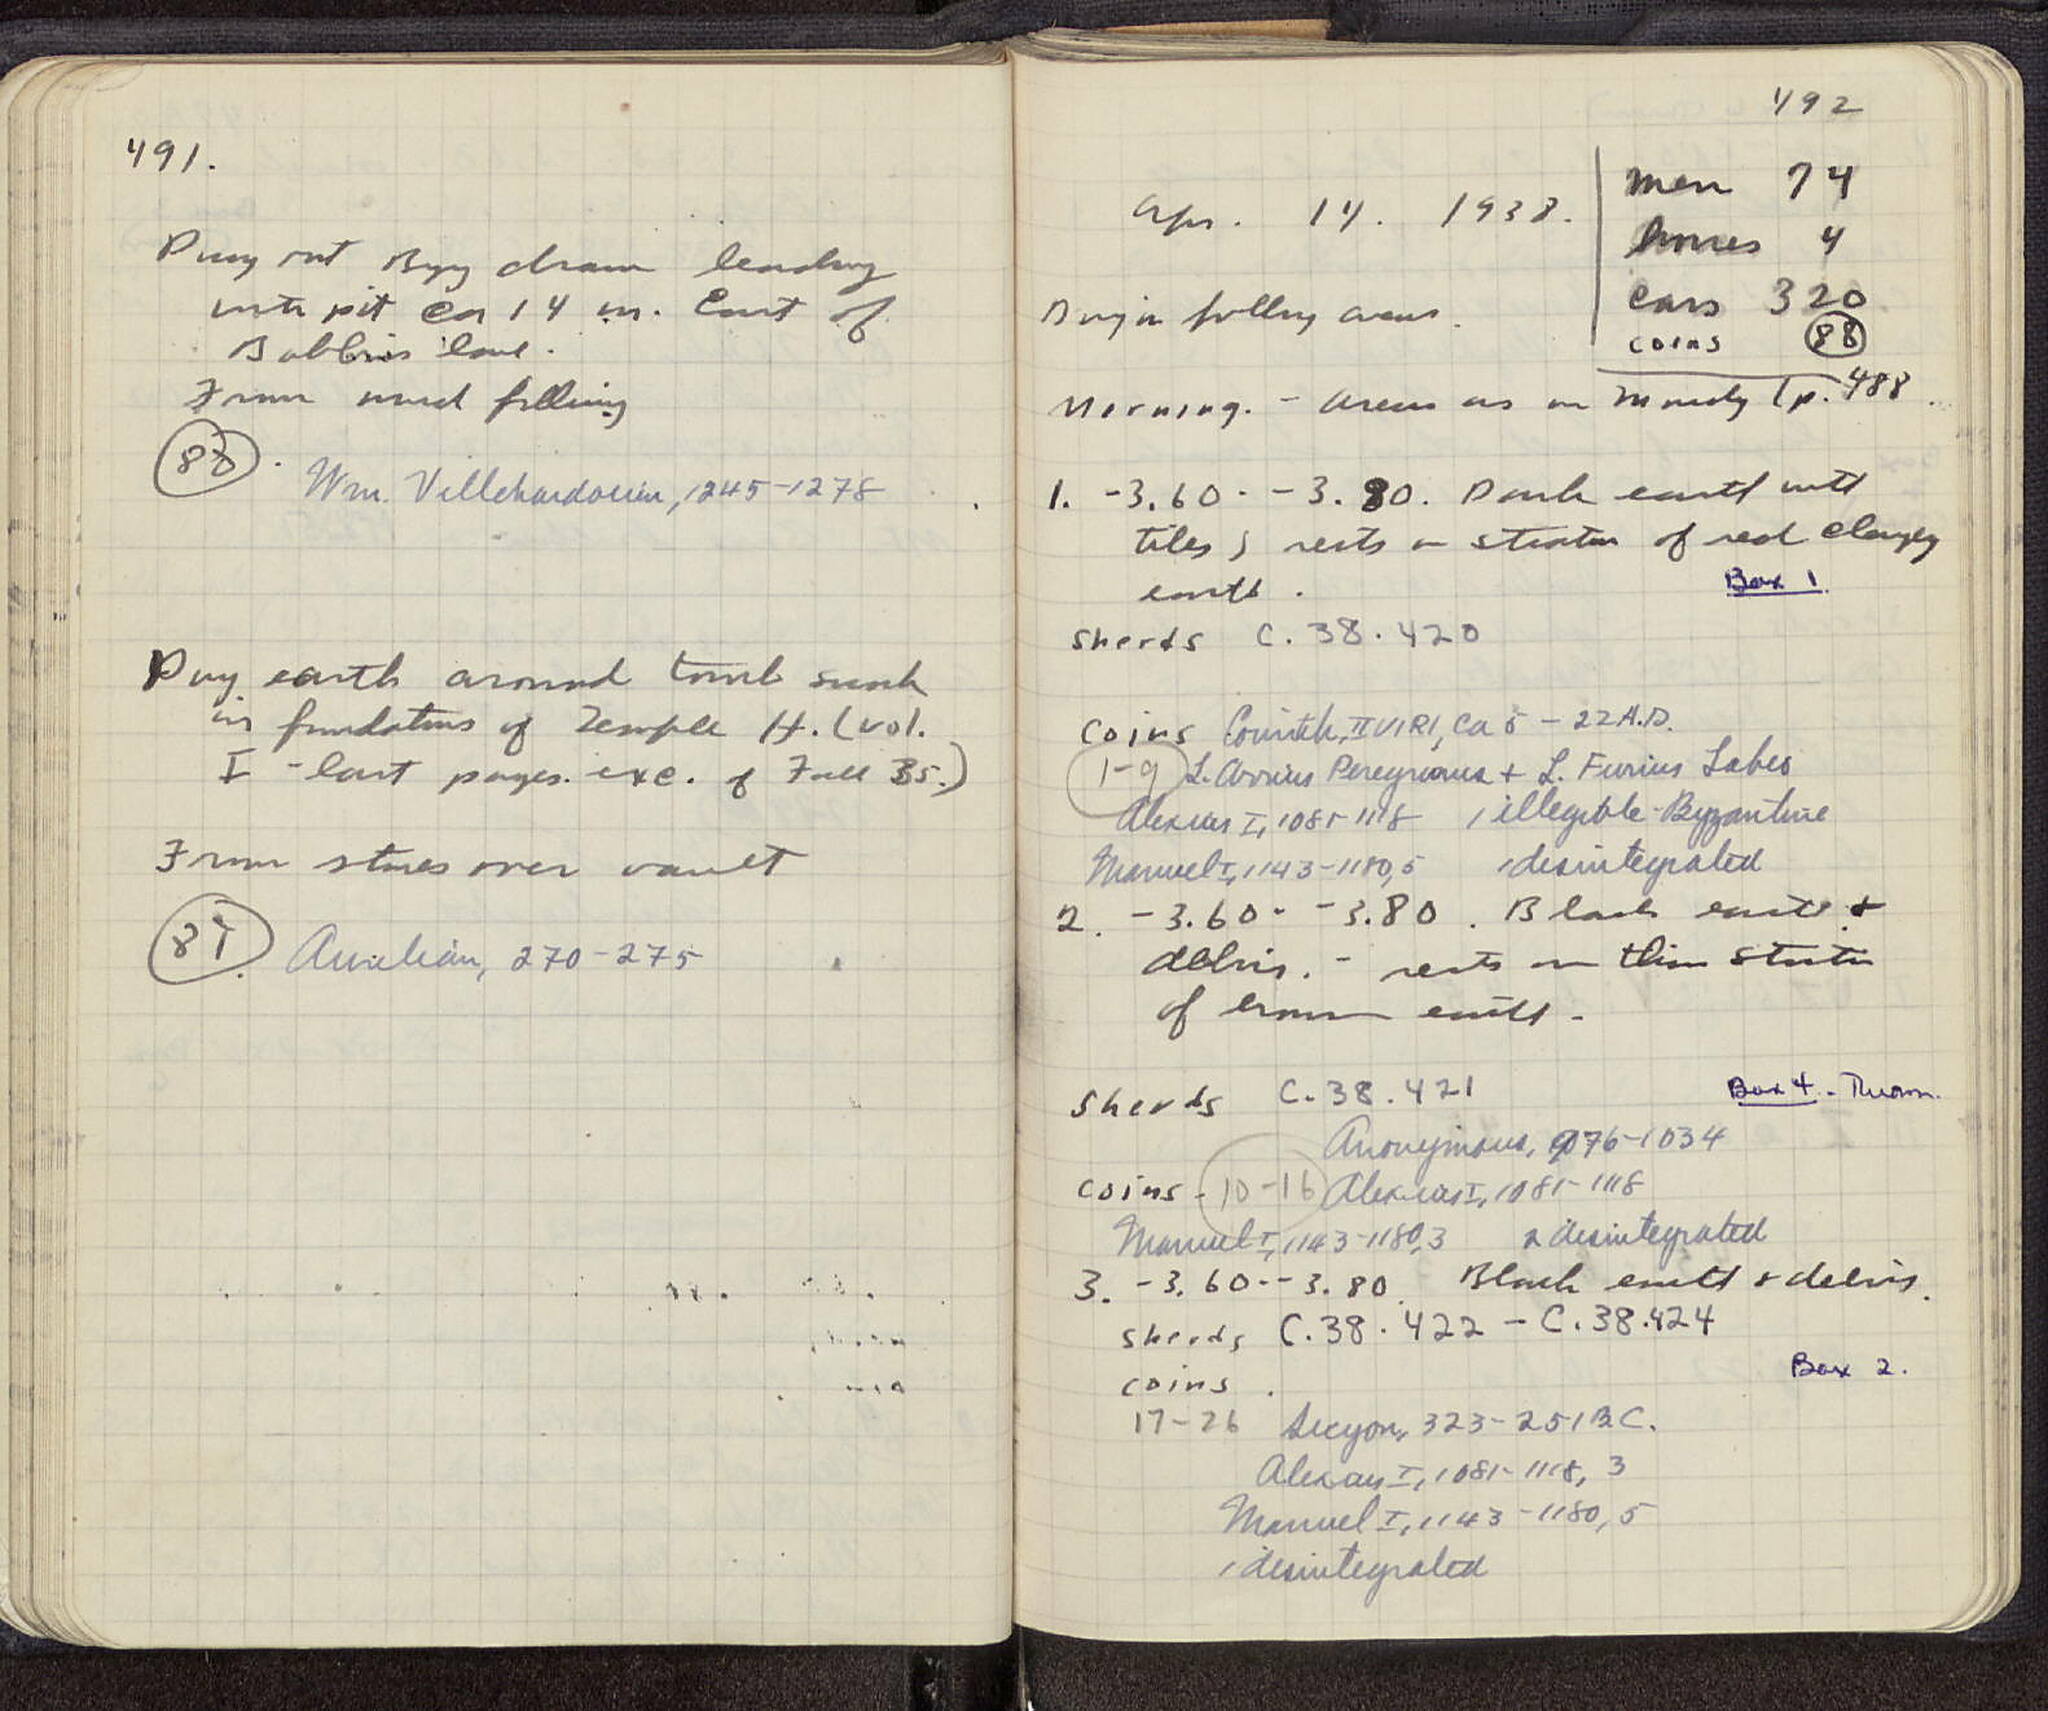 491.
Dug out Byz drain leading
into pit ca 14 m. East of
Babbius base.
From mud filling
80. Wm. Villehardouin, 1245-1278
Dug earth around tomb sunk
in foundations of Temple H. (vol.
I - last pages. exc. of Fall 35.)
From stones over vault
81. Aurelian, 270-275
492
Apr. 14. 1938.
men 74
horses 4
cars 320
coins 88
Dug in following areas.
Morning. - Areas as on Monday (p. 488
1. -3.60 - -3.80. Dark earth with
tiles; rests on stratum of red clayey
earth.
Box 1
Sherds C.38.420
Coins Corinth, IIVIRI, ca 5-22 A.D.
1-9 L. Arrius Peregrinus + L. Furius Labeo
Alexius I, 1081-1118 1 illegible - Byzantine
Manuel I, 1143-1180, 5 1 disintegrated
2. -3.60 - -3.80. Black earth &
debris. - rests on thin stratum
of brown earth.
Sherds C.38.421
Box 4 -
Anonymous, 976-1034
Coins - 10-16 Alexius I, 1081-1118
Manuel I, 1143-1180, 3 2 disintegrated
3. -3.60 - -3.80. Black earth & debris.
Sherds C.38.422 - C.38.424
Box 2.
coins.
17-26 Sicyon, 323-251 B.C.
Alexius I, 1081-1118, 3
Manuel I, 1143-1180, 5
1 disintegrated